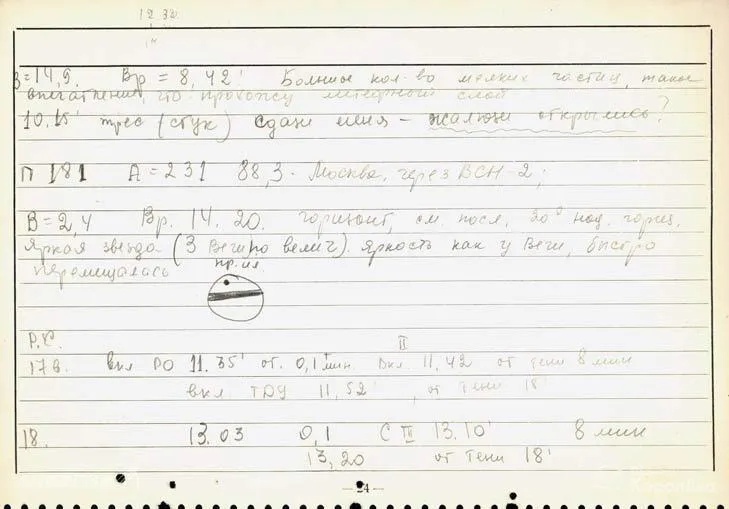 12 32
В=14,9. Вр = 8,42' Большое кол-во мелких частиц, такое
впечатление, что прохожу метеорный слой
10.15' треск (стук) сзади меня – жалюзи открылись?
П 181 А=231 88,3. Москва, через ВСН-2;
В=2,4 Вр. 14.20. горизонт, см. посл. 20° над гориз.
Яркая звезда (3 Веги по велич). Яркость как у Веги, быстро
перемещалась
Р.С.
II
17в. вкл РО 11.35' от. 0,1 мин. Вкл. 11,42 от тени 8 мин
вкл. ТДУ 11,52' от тени 18'
18. 13.03 0,1 С III 13.10' 8 мин
13,20 от тени 18'
— 24 —